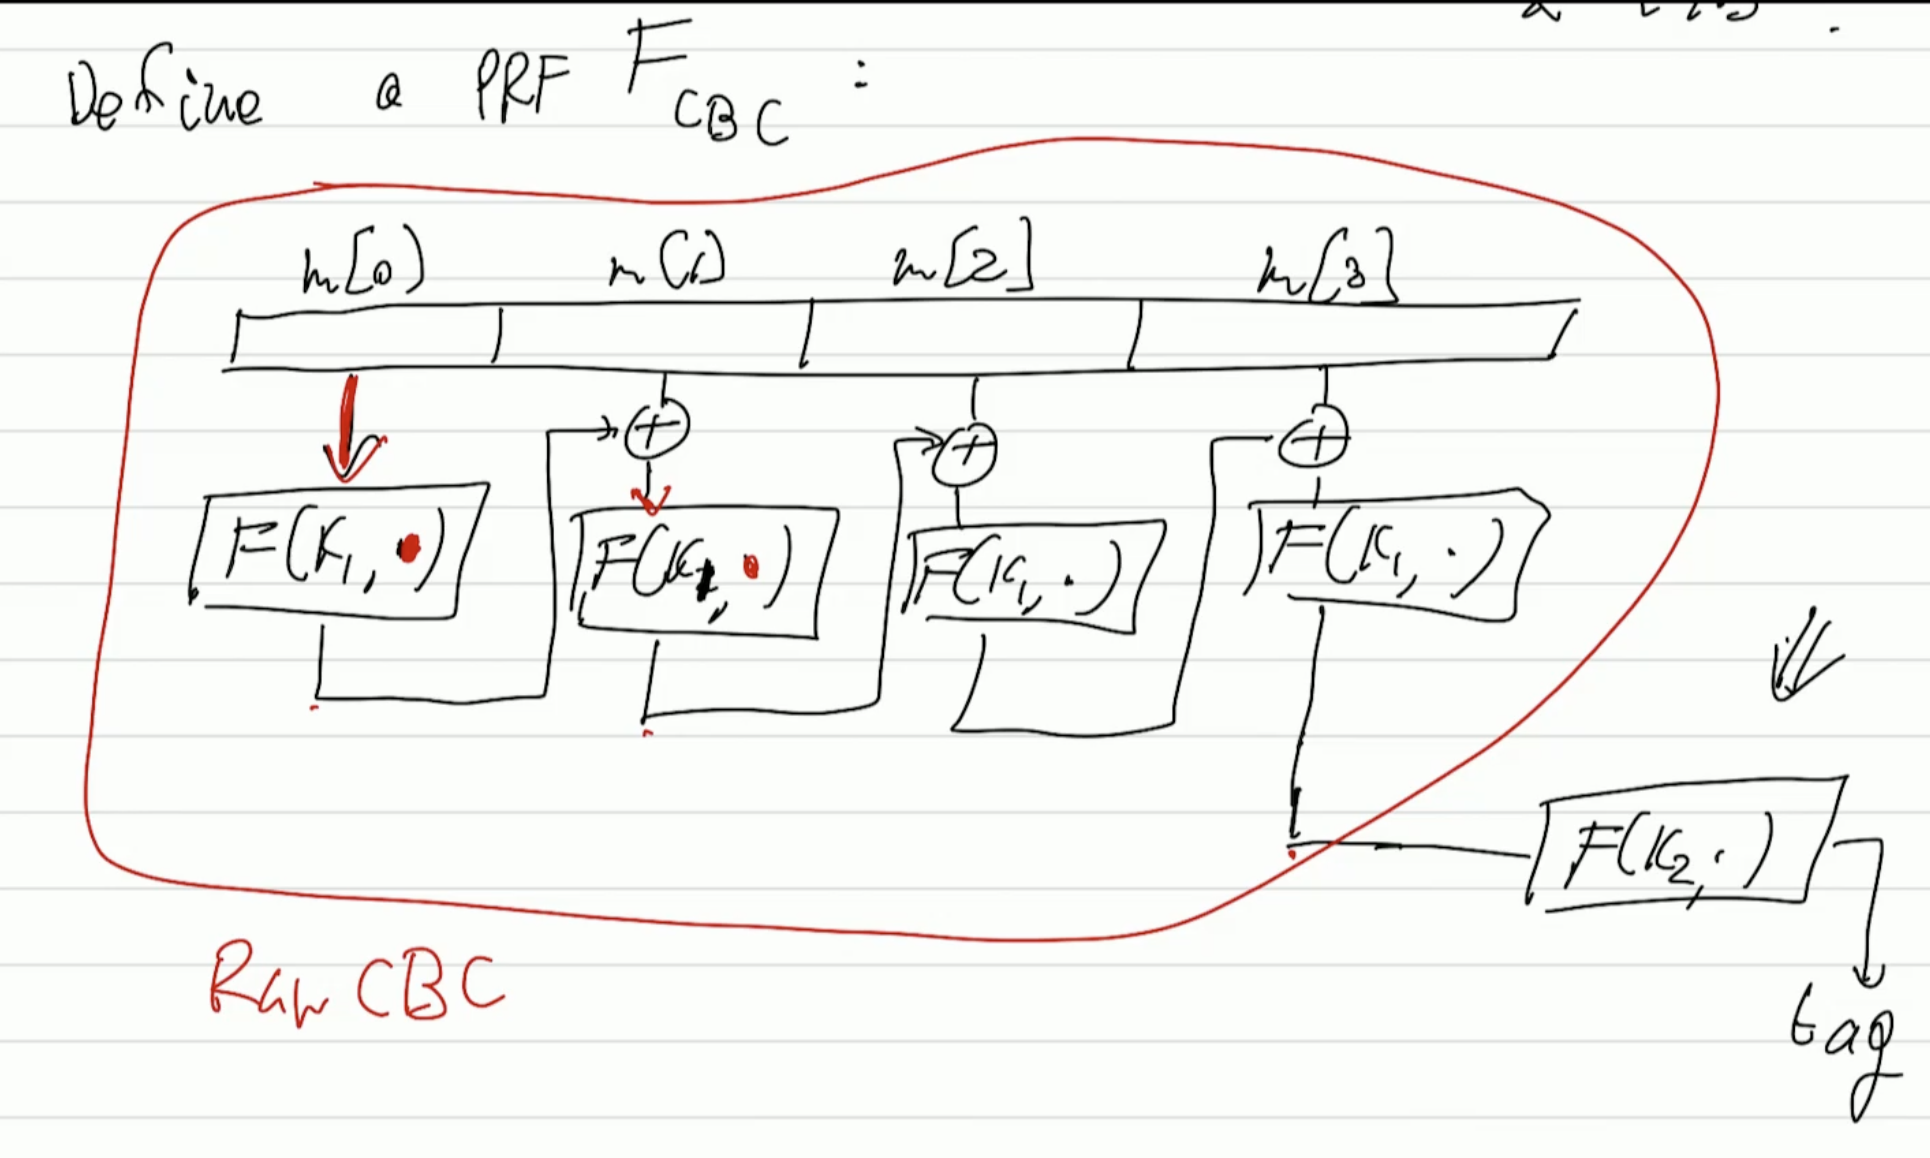 Define a PRF F_CBC :
m[0] m[1] m[2] m[3]
⊕ ⊕ ⊕
F(K₁, •) F(K₁, •) F(K₁, ·) F(K₁, ·)
F(K₂, ·)
Raw CBC
tag